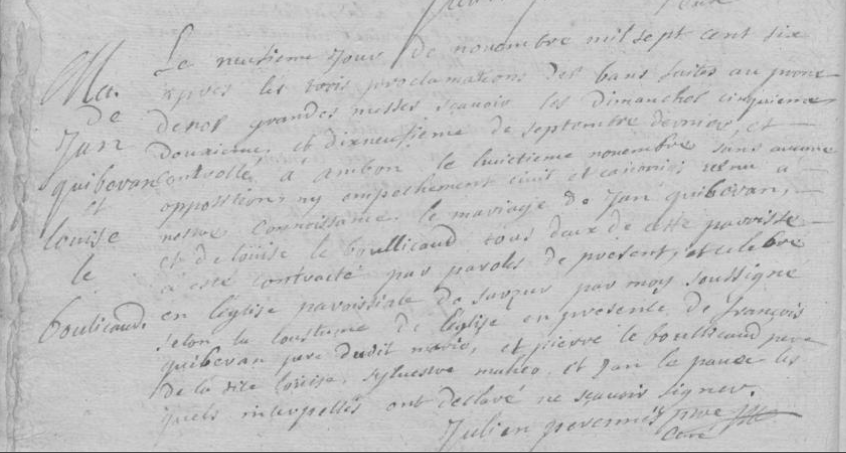 Ma.
de
Jan
quibevan
et
louise
le
boulicaud.
Le neufieme jour de novembre mil sept cent six
apres les trois proclamations des bans faites au prone
de nos grandes messes scavoir les dimanches cinquieme
douzieme et dixneufieme de septembre dernier, et
controllé, à ambon le huictieme novembre sans aucune
opposition, ny empechement civil et canonique venu à
nostre connoissance, le mariage de Jan quibevan,
et de louise le boullicaud tous deux de cette paroisse
à esté contracté par paroles de present, et celebre
en leglise paroissiale de surzur par moy soussigne
selon la coustume de leglise en presente de françois
quibevan pere dudit marié, et pierre le boullicaud pere
de la dite louise, sylvestre maheo, et Jan le pauex les
quels interpellés ont declaré ne scavoir signer.
Julien pbre